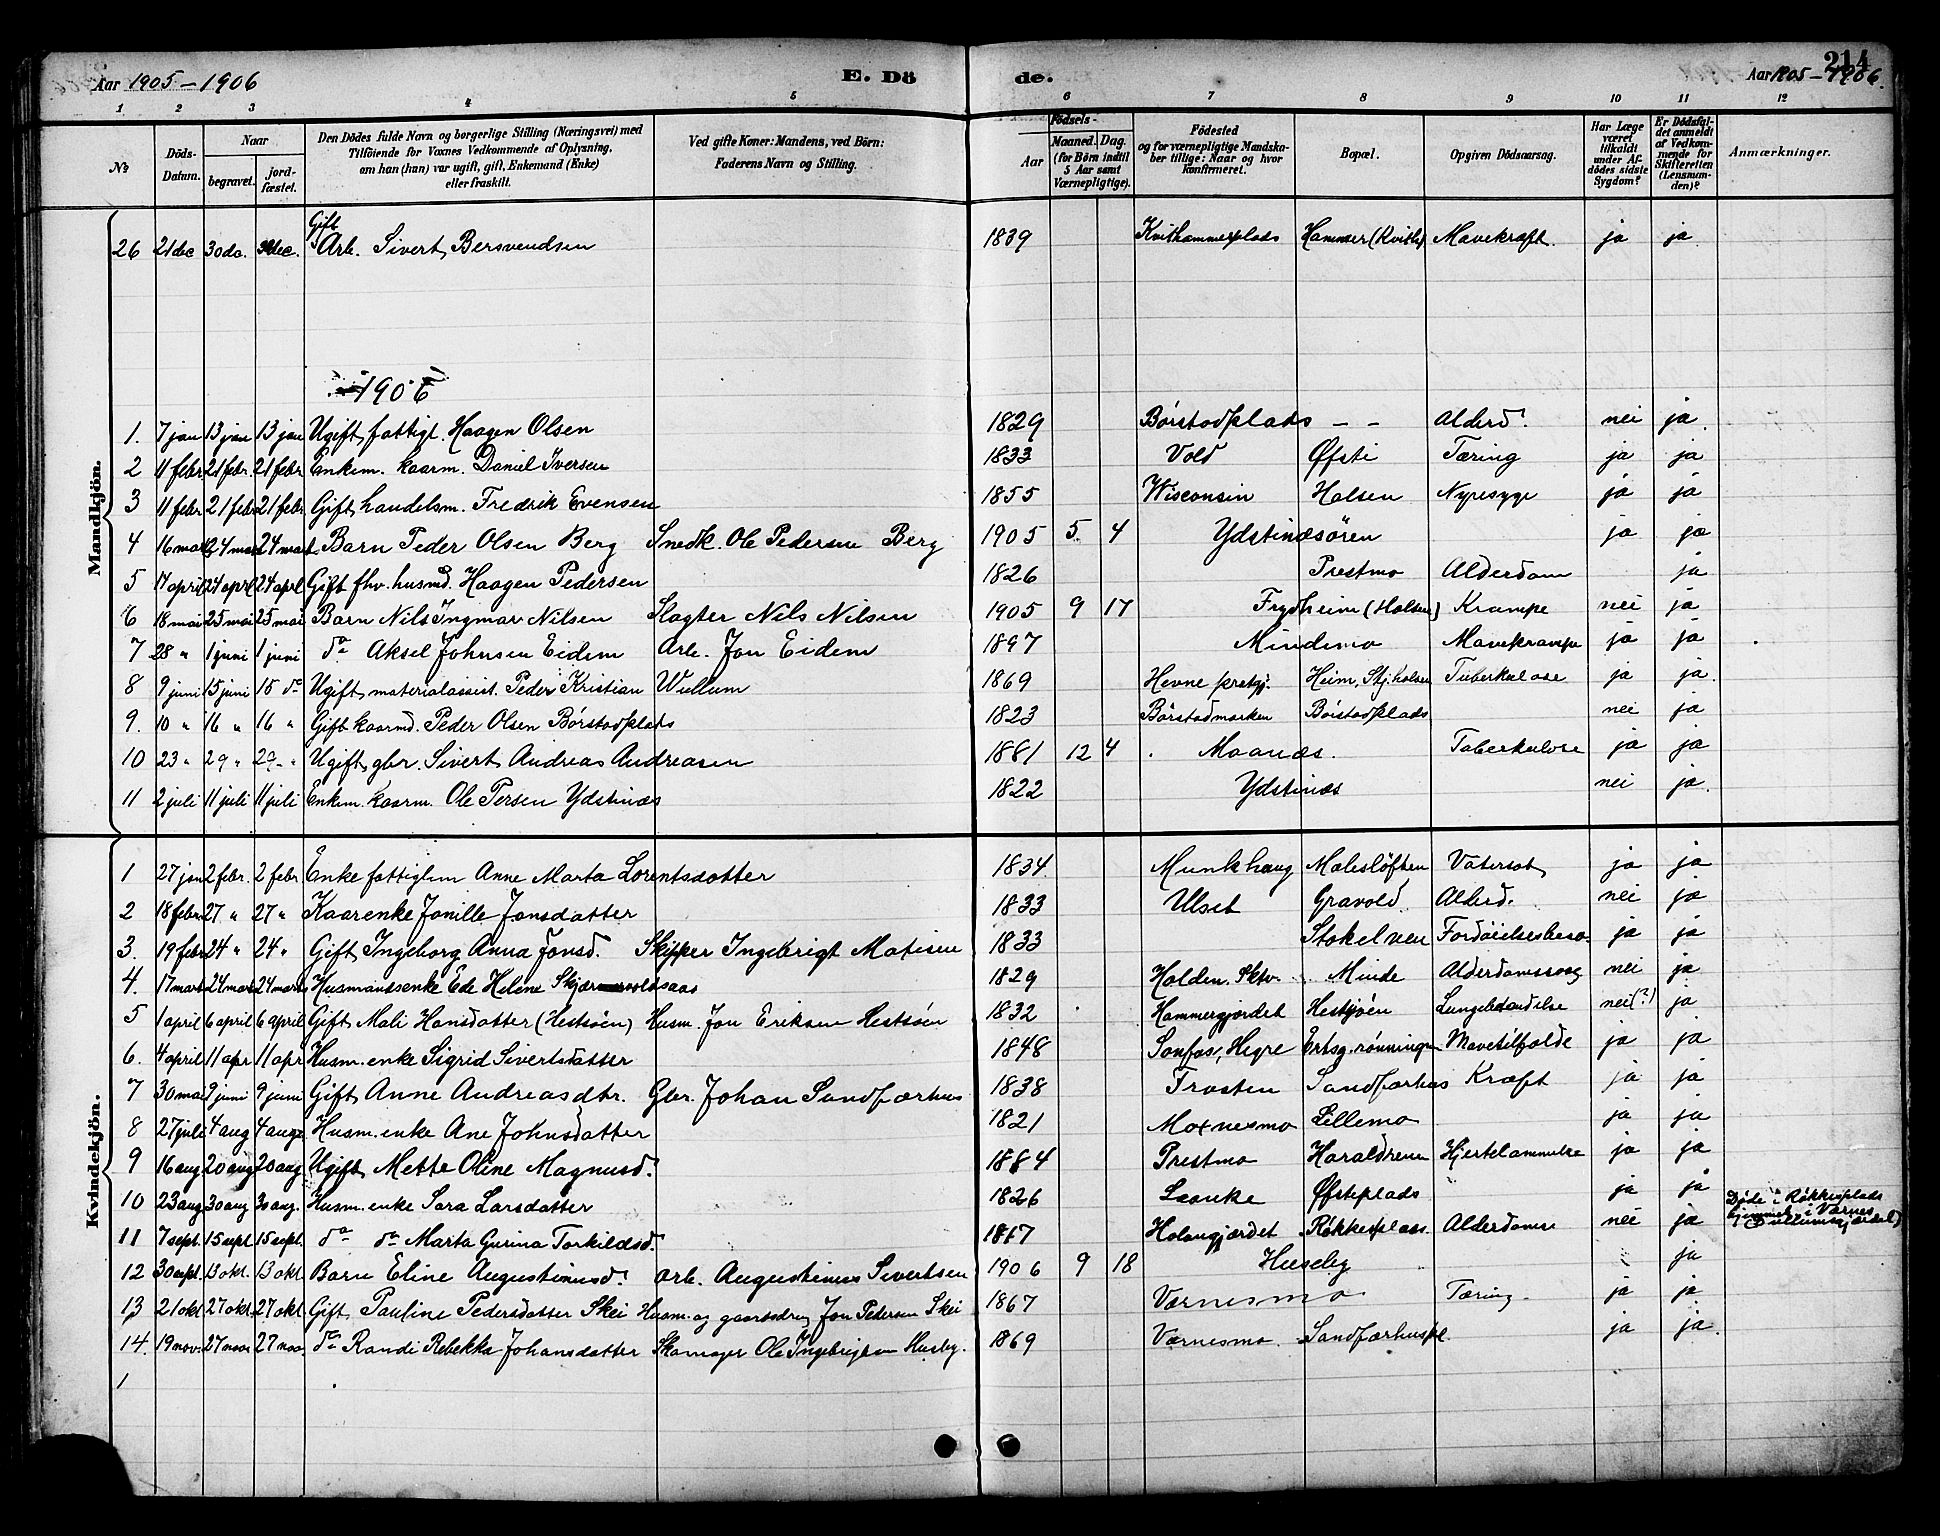 Aar 1905–1906 E. Dö de. Aar 1905–1906. 214
1 2 3 4 5 6 7 8 9 10 11 12
№ Döds-Datum. Naar begravet. jord-fæstet. Den Dödes fulde Navn og borgerlige Stilling (Næringsvei) med Tilföiende for Voxnes Vedkommende af Oplysning, om han (hun) var ugift, gift, Enkemand (Enke) eller fraskilt. Ved gifte Koner: Mandens, ved Börn: Faderens Navn og Stilling. Födsels- Aar Maaned. Dag. (for Börn indtil 5 Aar samt Værnepligtige). Födested og for værnepligtige Mandska-ber tillige: Naar og hvor konfirmeret. Bopæl. Opgiven Dödsaarsag. Har Læge været tilkaldt under Af-dödes sidste Sygdom? Er Dödsfal-det anmeldt af Vedkom-mende for Skifteretten (Lensman-den)? Anmærkninger.
Mandkjön.
26 21 dec 30 do. 30 dec. Gift Arb. Sivert Bersvendsen 1839 Kvithammerplads Hammer (Kvith) Mavekræft. ja ja
1906
1. 7 jan 13 jan 13 jan Ugift, fattigl. Haagen Olsen 1829 Börstadplads – – Alderd. nei ja.
2 11 febr 21 febr. 21 febr Enkem. kaarm. Daniel Iversen 1833 Vold Øfsti Tæring ja ja
3 11 febr 21 febr 21 febr Gift handelsm. Fredrik Evensen 1855 Wisconsin Halsen Nyresyge ja ja
4 16 mars 24 mars 24 mars Barn Peder Olsen Berg Snedk. Ole Pedersen Berg 1905 5 4 Ydstinæsören ja ja
5 17 april 24 aprl 24 aprl Gift fhv. husmd. Haagen Pedersen 1826 Prestmo Alderdom ja
6 18 mai 25 mai 25 mai Barn Nils Ingmar Nilsen Slagter Nils Nilsen 1905 9 17 Frydheim (Halsen) Krampe nei ja
7 28 " 1 juni 1 juni do Aksel Johnsen Eidem Arb. Jon Eidem 1897 Mindemo Mavekrampe ja ja
8 9 juni 15 juni 15 do Ugift materialassist. Peder Kristian Wullum 1869 Hevne prstgj. Heim, Stj.halsen Tuberkulose ja ja.
9. 10 " 16 " 16 " Gift kaarmd. Peder Olsen Börstadplads 1823 Börstadmarken Börstadplads nei ja
10 23 " 29 " 29 " Ugift gbr. Sivert Andreas Andreasen 1881 12 4 Maanæs. Tuberkulose ja ja
11 2 juli 11 juli 11 juli Enkm. kaarm. Ole Persen Ydstinæs 1822 Ydstinæs nei ja.
Kvindekjön.
1 27 jan 2 febr. 2 febr Enke fattiglem Anne Marta Lorentsdatter 1834 Munkhaug Malesløften Vatersot ja ja
2 18 febr 27 " 27 " Kaarenke Jonille Jonsdatter 1833 Ulset Gravold Alderd. nei ja
3. 19 febr 24 " 24 " Gift Ingeborg Anna Jonsd. Skipper Ingebrigt Matisen 1833 Stokelven Fordöielsesbesv. ja ja
4. 17 mars 24 mars 24 mars Husmandsenke Ede Helene 1829 Holden. Sktv. Minde Alderdomssvag nei ja
5 1 april 6 april 6 april Gift Mali Hansdatter (Hestsöen) Husm. Jon Eriksen Hestsöen 1832 Hammergjerdet Hestsjöen Lungebetændelse nei (?) ja
6. 4 april 11 apr 11 apr Husm.enke Sigrid Sivertsdatter 1848 Sonfos, Hegre Ertsg.rönningen Mavetilfælde ja ja
7 30 mai 9 juni 9 juni Gift Anne Andreasdtr. Gbr. Johan Sandfærhus 1838 Trosten Sandfærhus Kræft ja ja
8 27 juli 4 aug 4 aug Husm.enke Ane Johnsdatter 1821 Moxnesmo Lillemo ja ja
9 16 aug 20 aug 20 aug Ugift Mette Oline Magnusd. 1884 Prestmo Haraldreina Hjertelammelse ja ja
10 23 aug 30 aug 30 aug. Husm.enke Sara Larsdatter 1826 Laanke Øfsteplads ja ja
11 7 sept. 15 sept. 15 sept. do do Marta Gurina Torkildsd. 1817 Holangjærdet Røkkesplass. Alderdoms nei ja Døde i Røkkesplads hjemmeh. i Værnes
12 30 sept. 13 okt. 13 okt Barn Eline Augustinusd. Arb. Augustinus Sivertsen 1906 9 18 Huseby ja
13 21 okt 27 okt. 27 okt Gift Pauline Pedersdatter Skei Husm. og gaardsdreng Jon Pedersen Skei 1867 Værnesmo Tæring – ja ja
14. 19 nov. 27 nov 27 nov. do Randi Rebekka Johansdatter Skomager Ole Ingebrigtsen Husby. 1869 Værnesmo Sandfærhuspl. ja ja.
1